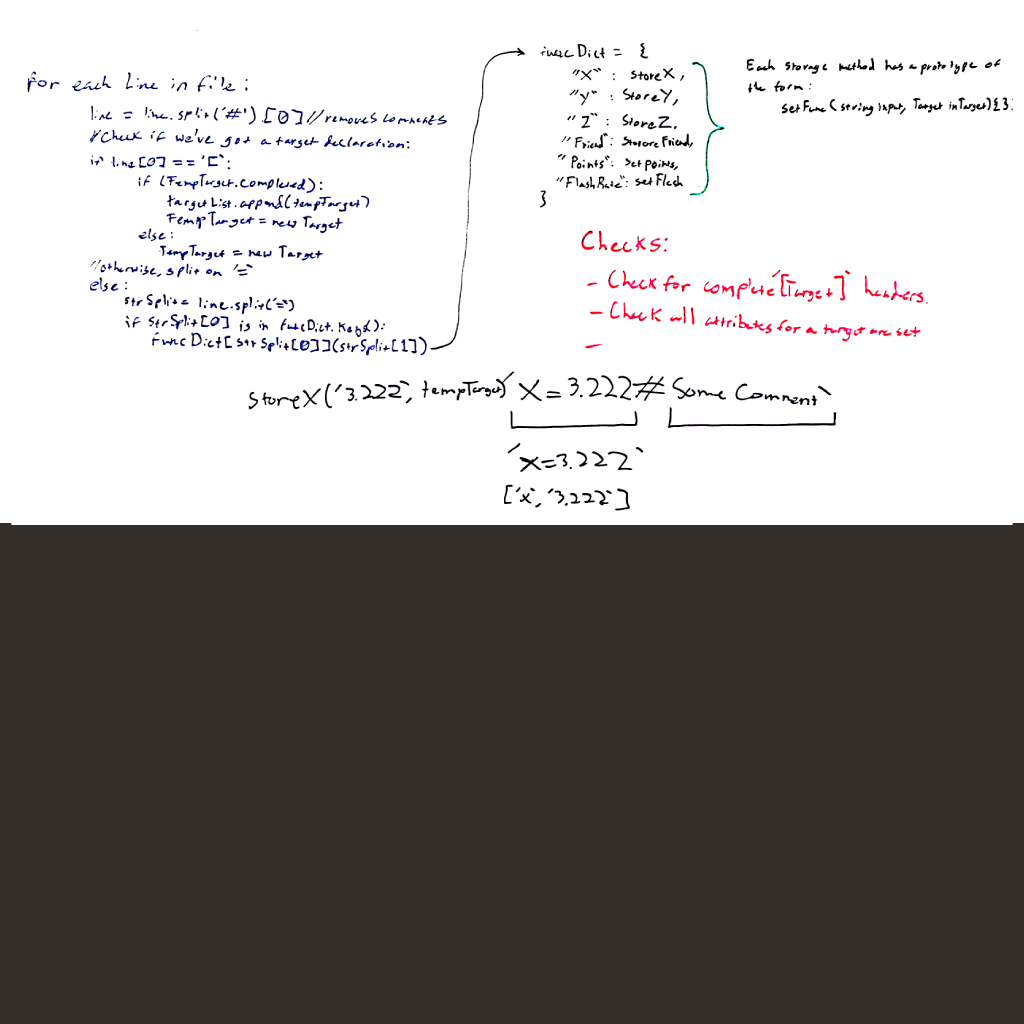 For each Line in file:
line = line.split('#')[0] //removes comments
//Check if we've got a target declaration:
if line[0] == '[':
if (TempTarget.Completed):
targetList.append(tempTarget)
TempTarget = new Target
else:
TempTarget = new Target
//otherwise, split on '='
else:
strSplit = line.split('=')
if strSplit[0] is in funcDict.Keys():
funcDict[strSplit[0]](strSplit[1])
funcDict = {
"X" : StoreX,
"Y" : StoreY,
"Z" : StoreZ,
"Friend": Store Friend,
"Points": Set points,
"FlashRate": set Flash
}
Each storage method has a prototype of
the form:
setFunc(string input, Target inTarget){}.
Checks:
- Check for complete '[Target]' headers.
- Check all attributes for a target are set
-
storeX('3.222', tempTarget) 'X=3.222# Some Comment'
'X=3.222'
['x', '3.222']